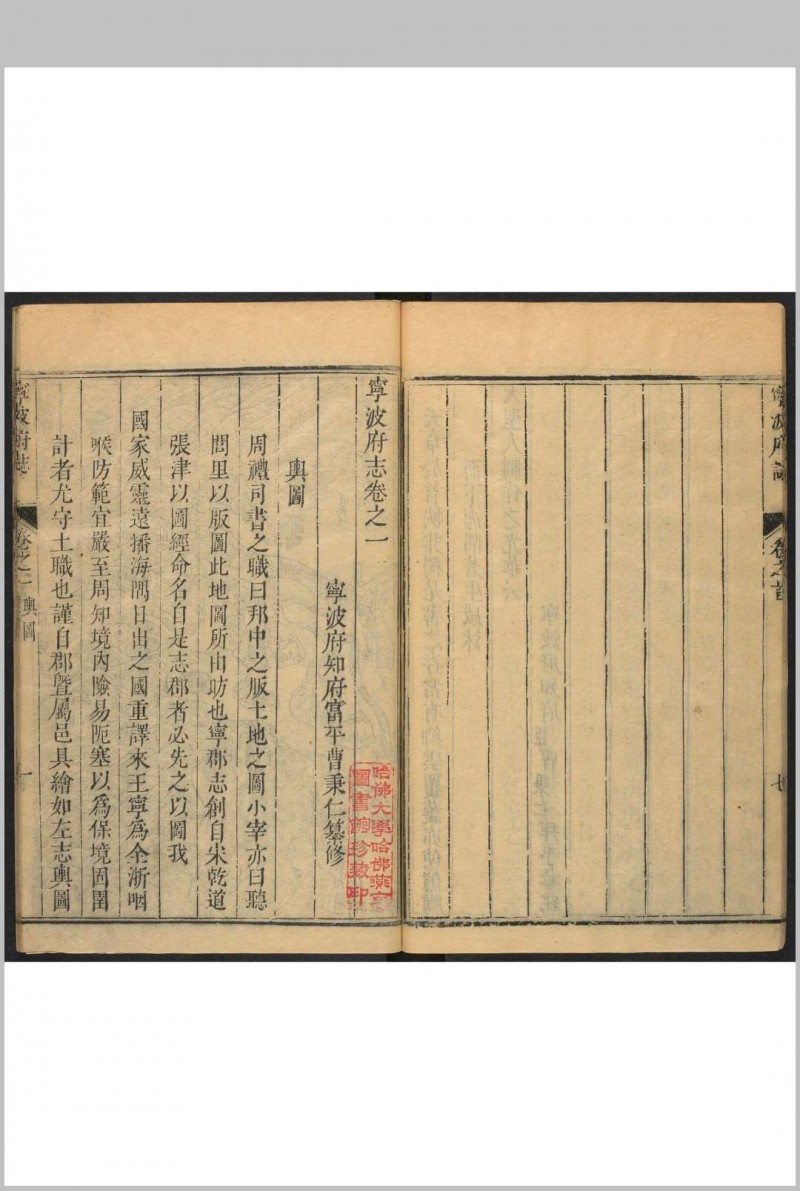 寧波府志
卷之首
七
寧波府志卷之一
寧波府知府富平曹秉仁纂修
輿圖
周禮司書之職曰邦中之版土地之圖小宰亦曰聽
閭里以版圖此地圖所由昉也寧郡志創自宋乾道
張津以圖經命名自是志郡者必先之以圖我
國家威靈遠播海隅日出之國重譯來王寧為全浙咽
喉防範宜嚴至周知境內險易阨塞以為保境固圉
計者尤守土職也謹自郡暨屬邑具繪如左志輿圖
寧波府志
卷之一 輿圖
一
哈佛大學哈佛燕京
圖書館珍藏印